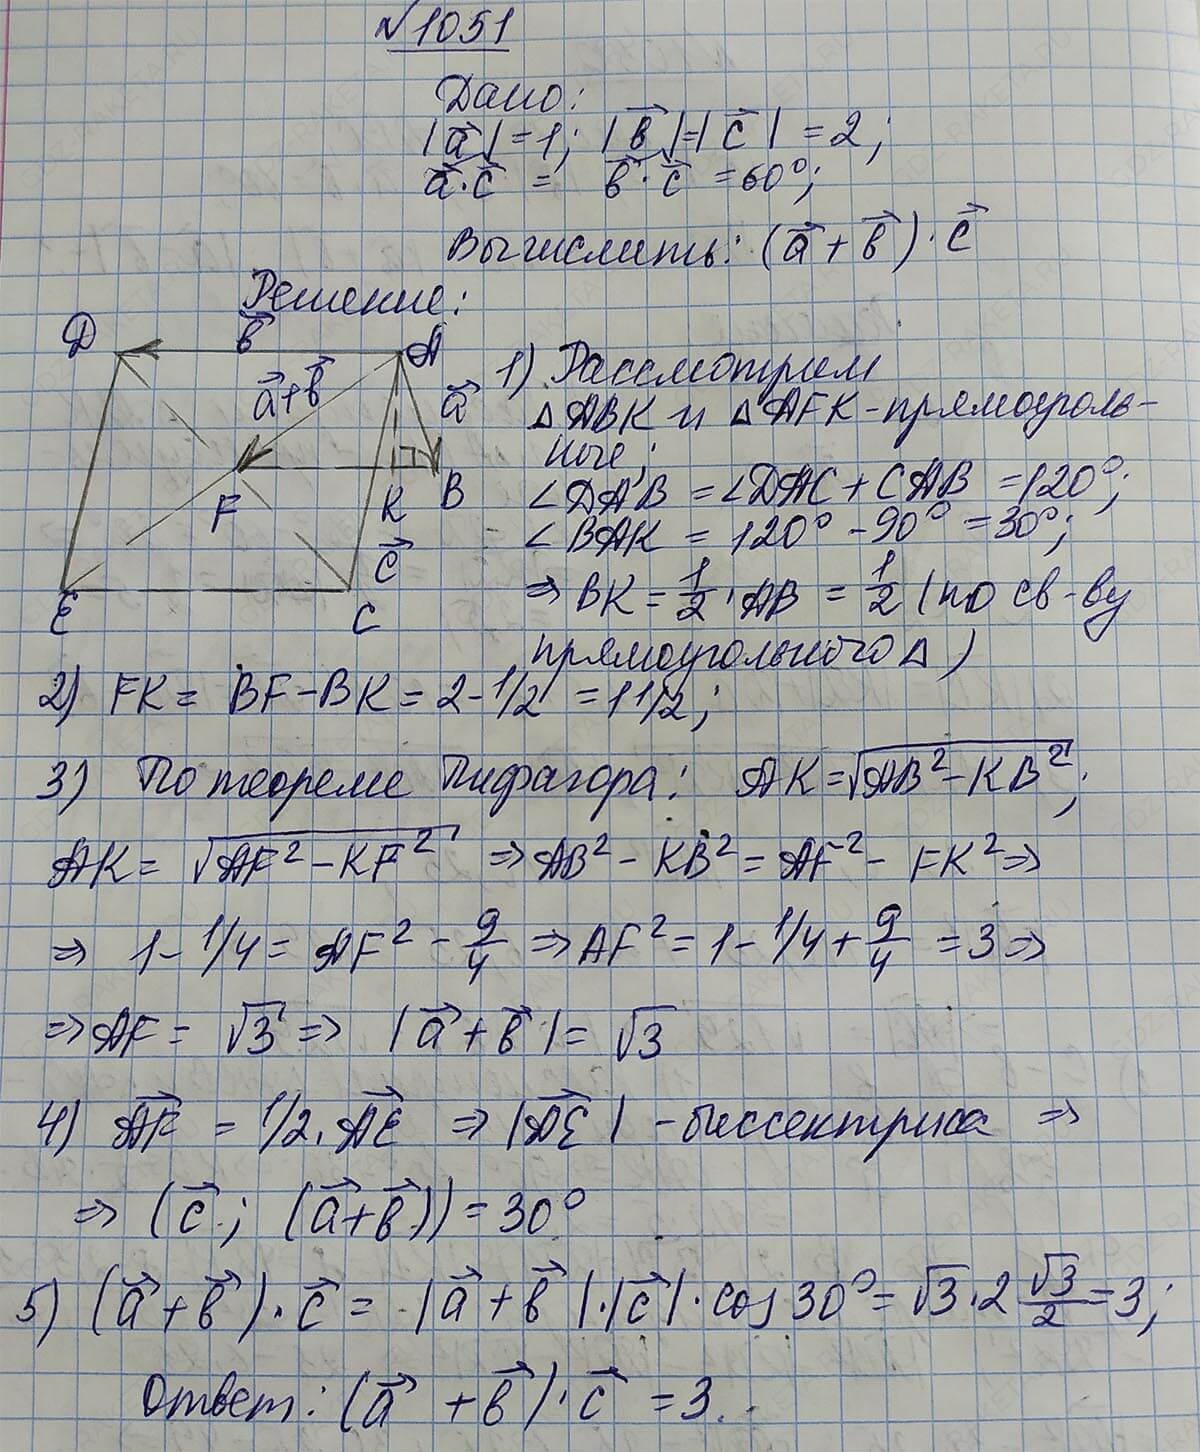 №1051
Дано:
|a⃗| = 1; |b⃗| = |c⃗| = 2;
a⃗·c⃗ = b⃗·c⃗ = 60°;
Вычислить: (a⃗ + b⃗)·c⃗
Решение:
D b⃗ A
a⃗+b⃗ a⃗
F K B
c⃗
E C
1) Рассмотрим
△ABK и △AFK - прямоуголь-
ные;
∠DAB = ∠DAC + CAB = 120°;
∠BAK = 120° - 90° = 30°;
⇒ BK = 1/2 · AB = 1/2 (по св-ву
прямоугольного △)
2) FK = BF - BK = 2 - 1/2 = 1 1/2;
3) По теореме Пифагора: AK = √(AB² - KB²);
AK = √(AF² - KF²) ⇒ AB² - KB² = AF² - FK² ⇒
⇒ 1 - 1/4 = AF² - 9/4 ⇒ AF² = 1 - 1/4 + 9/4 = 3 ⇒
⇒ AF = √3 ⇒ |a⃗ + b⃗| = √3
4) AF⃗ = 1/2 · AE⃗ ⇒ |AE⃗| - биссектриса ⇒
⇒ (c⃗; (a⃗+b⃗)) = 30°
5) (a⃗ + b⃗)·c⃗ = |a⃗ + b⃗|·|c⃗|·cos 30° = √3 · 2 √3/2 = 3;
Ответ: (a⃗ + b⃗)·c⃗ = 3.